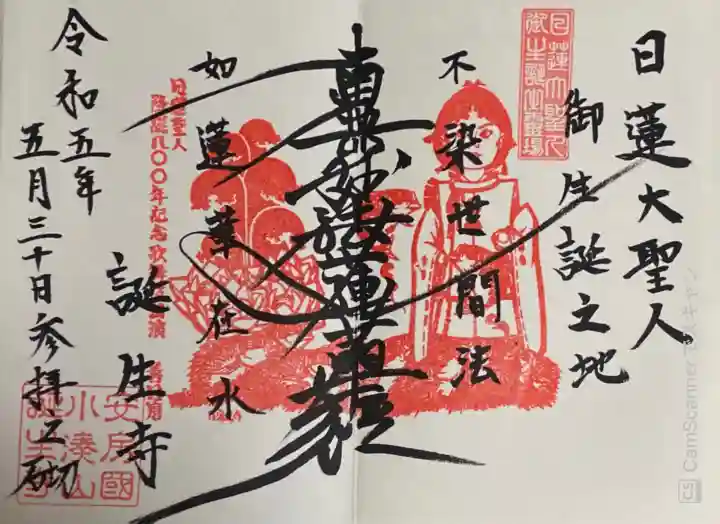 日蓮大聖人
御生誕之地
日蓮大聖人
御生誕出霊場
不染世間法
南無妙法蓮華経
如蓮華在水
日蓮聖人
降誕八〇〇年記念
誕生寺
令和五年
五月三十日参拝之砌
安房國
小湊山
誕生寺
CS CamScanner でスキャン